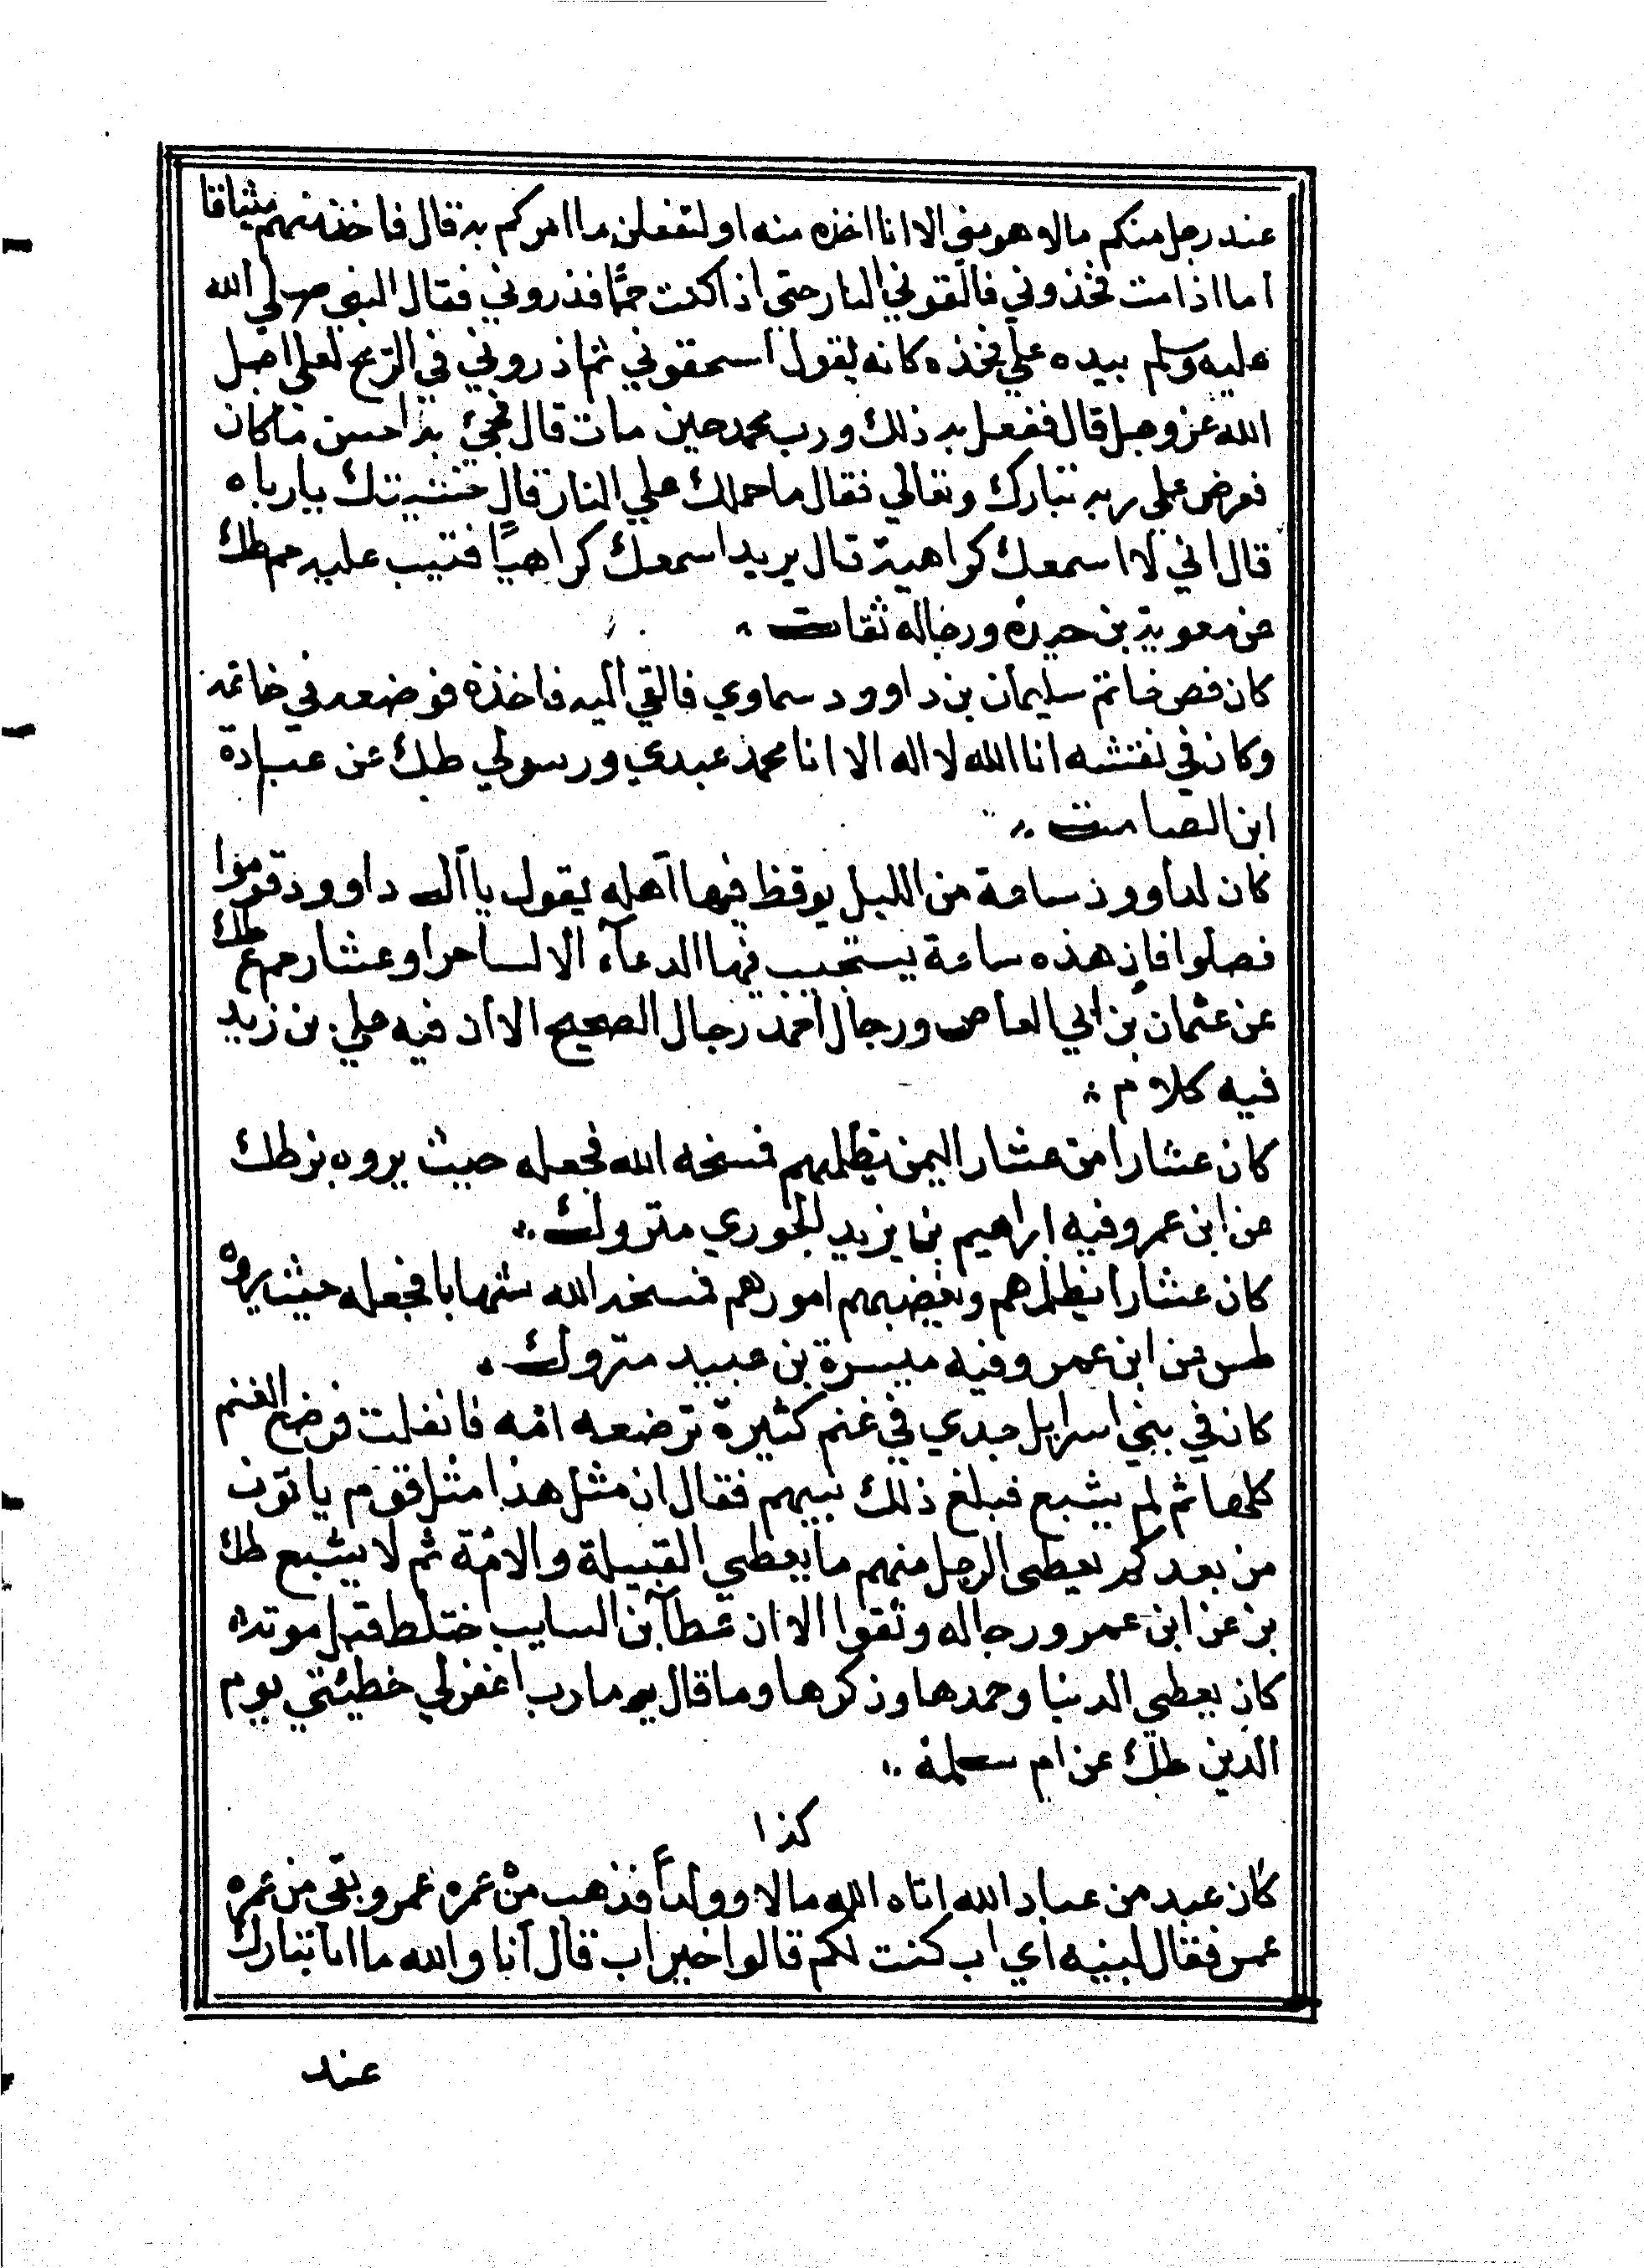 عند رجل منكم مالا هو مني الا انا اخذه منه او لتفعلن ما امركم به قال فاخذ منهم ميثاقا
اما اذا مت فخذوني فالقوني النار حتى اذا كنت حمما فذروني فقال النبي صلي الله
عليه وسلم بيده علي فخذه كانه يقول اسحقوني ثم اذروني في الريح لعلي اضل
الله عز وجل قال ففعل به ذلك ورب محمد حين مات قال فجئ به احسن ما كان
فعرض علي ربه تبارك وتعالي فقال ما حملك علي النار قال خشيتك يارباه
قال اني لا اسمعك كراهية قال يريد اسمعك كراهيا فتيب عليه حم طك
عن معوية بن حيدة ورجاله ثقات
كان فص خاتم سليمان بن داوود سماوي فالقي اليه فاخذه فوضعه في خاتمه
وكان في نقشه انا الله لا اله الا انا محمد عبدي ورسولي طك عن عبادة
ابن الصامت
كان لداوود ساعة من الليل يوقظ فيها اهله يقول يا آل داوود قوموا
فصلوا فان هذه ساعة يستجيب فيها الدعآء الا لساحر او عشار حم ع طك
عن عثمان بن ابي العاص ورجال احمد رجال الصحيح الا ان فيه علي بن زيد
فيه كلام
كان عشارا من عشار اليمن يظلمهم فمسخه الله فجعله حيث يروه بز طك
عن ابن عمر وفيه ابراهيم بن يزيد الخوري متروك
كان عشارا يظلمهم ويغضبهم امورهم فمسخه الله شهابا فجعله حيث يروه
طس عن ابن عمر وفيه ميسرة بن عبيد متروك
كان في بني اسرايل جدي في غنم كثيرة ترضعه امه فانفلت فرضع الغنم
كلها ثم لم يشبع فبلغ ذلك نبيهم فقال ان مثل هذا مثل قوم ياتون
من بعدكم يعطى الرجل منهم ما يعطي القبيلة والامة ثم لا يشبع طك
بز عن ابن عمر ورجاله وثقوا الا ان عطآ بن السايب اختلط قبل موته
كان يعطي الدنيا وحمدها وذكرها وما قال يوما رب اغفر لي خطيئتي يوم
الدين طك عن ام سلمة
كذا
كان عبد من عباد الله اتاه الله مالا وولدا فذهب من عمره عمر وبقي من عمره
عمر فقال لبنيه اي اب كنت لكم قالوا خير اب قال انا والله ما انا بتارك
عند